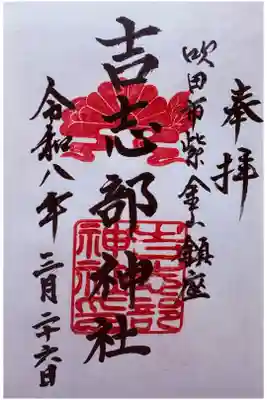 奉拝
吹田市紫金山鎮座
吉志部神社
吉志部
神社印
令和八年 二月二十六日